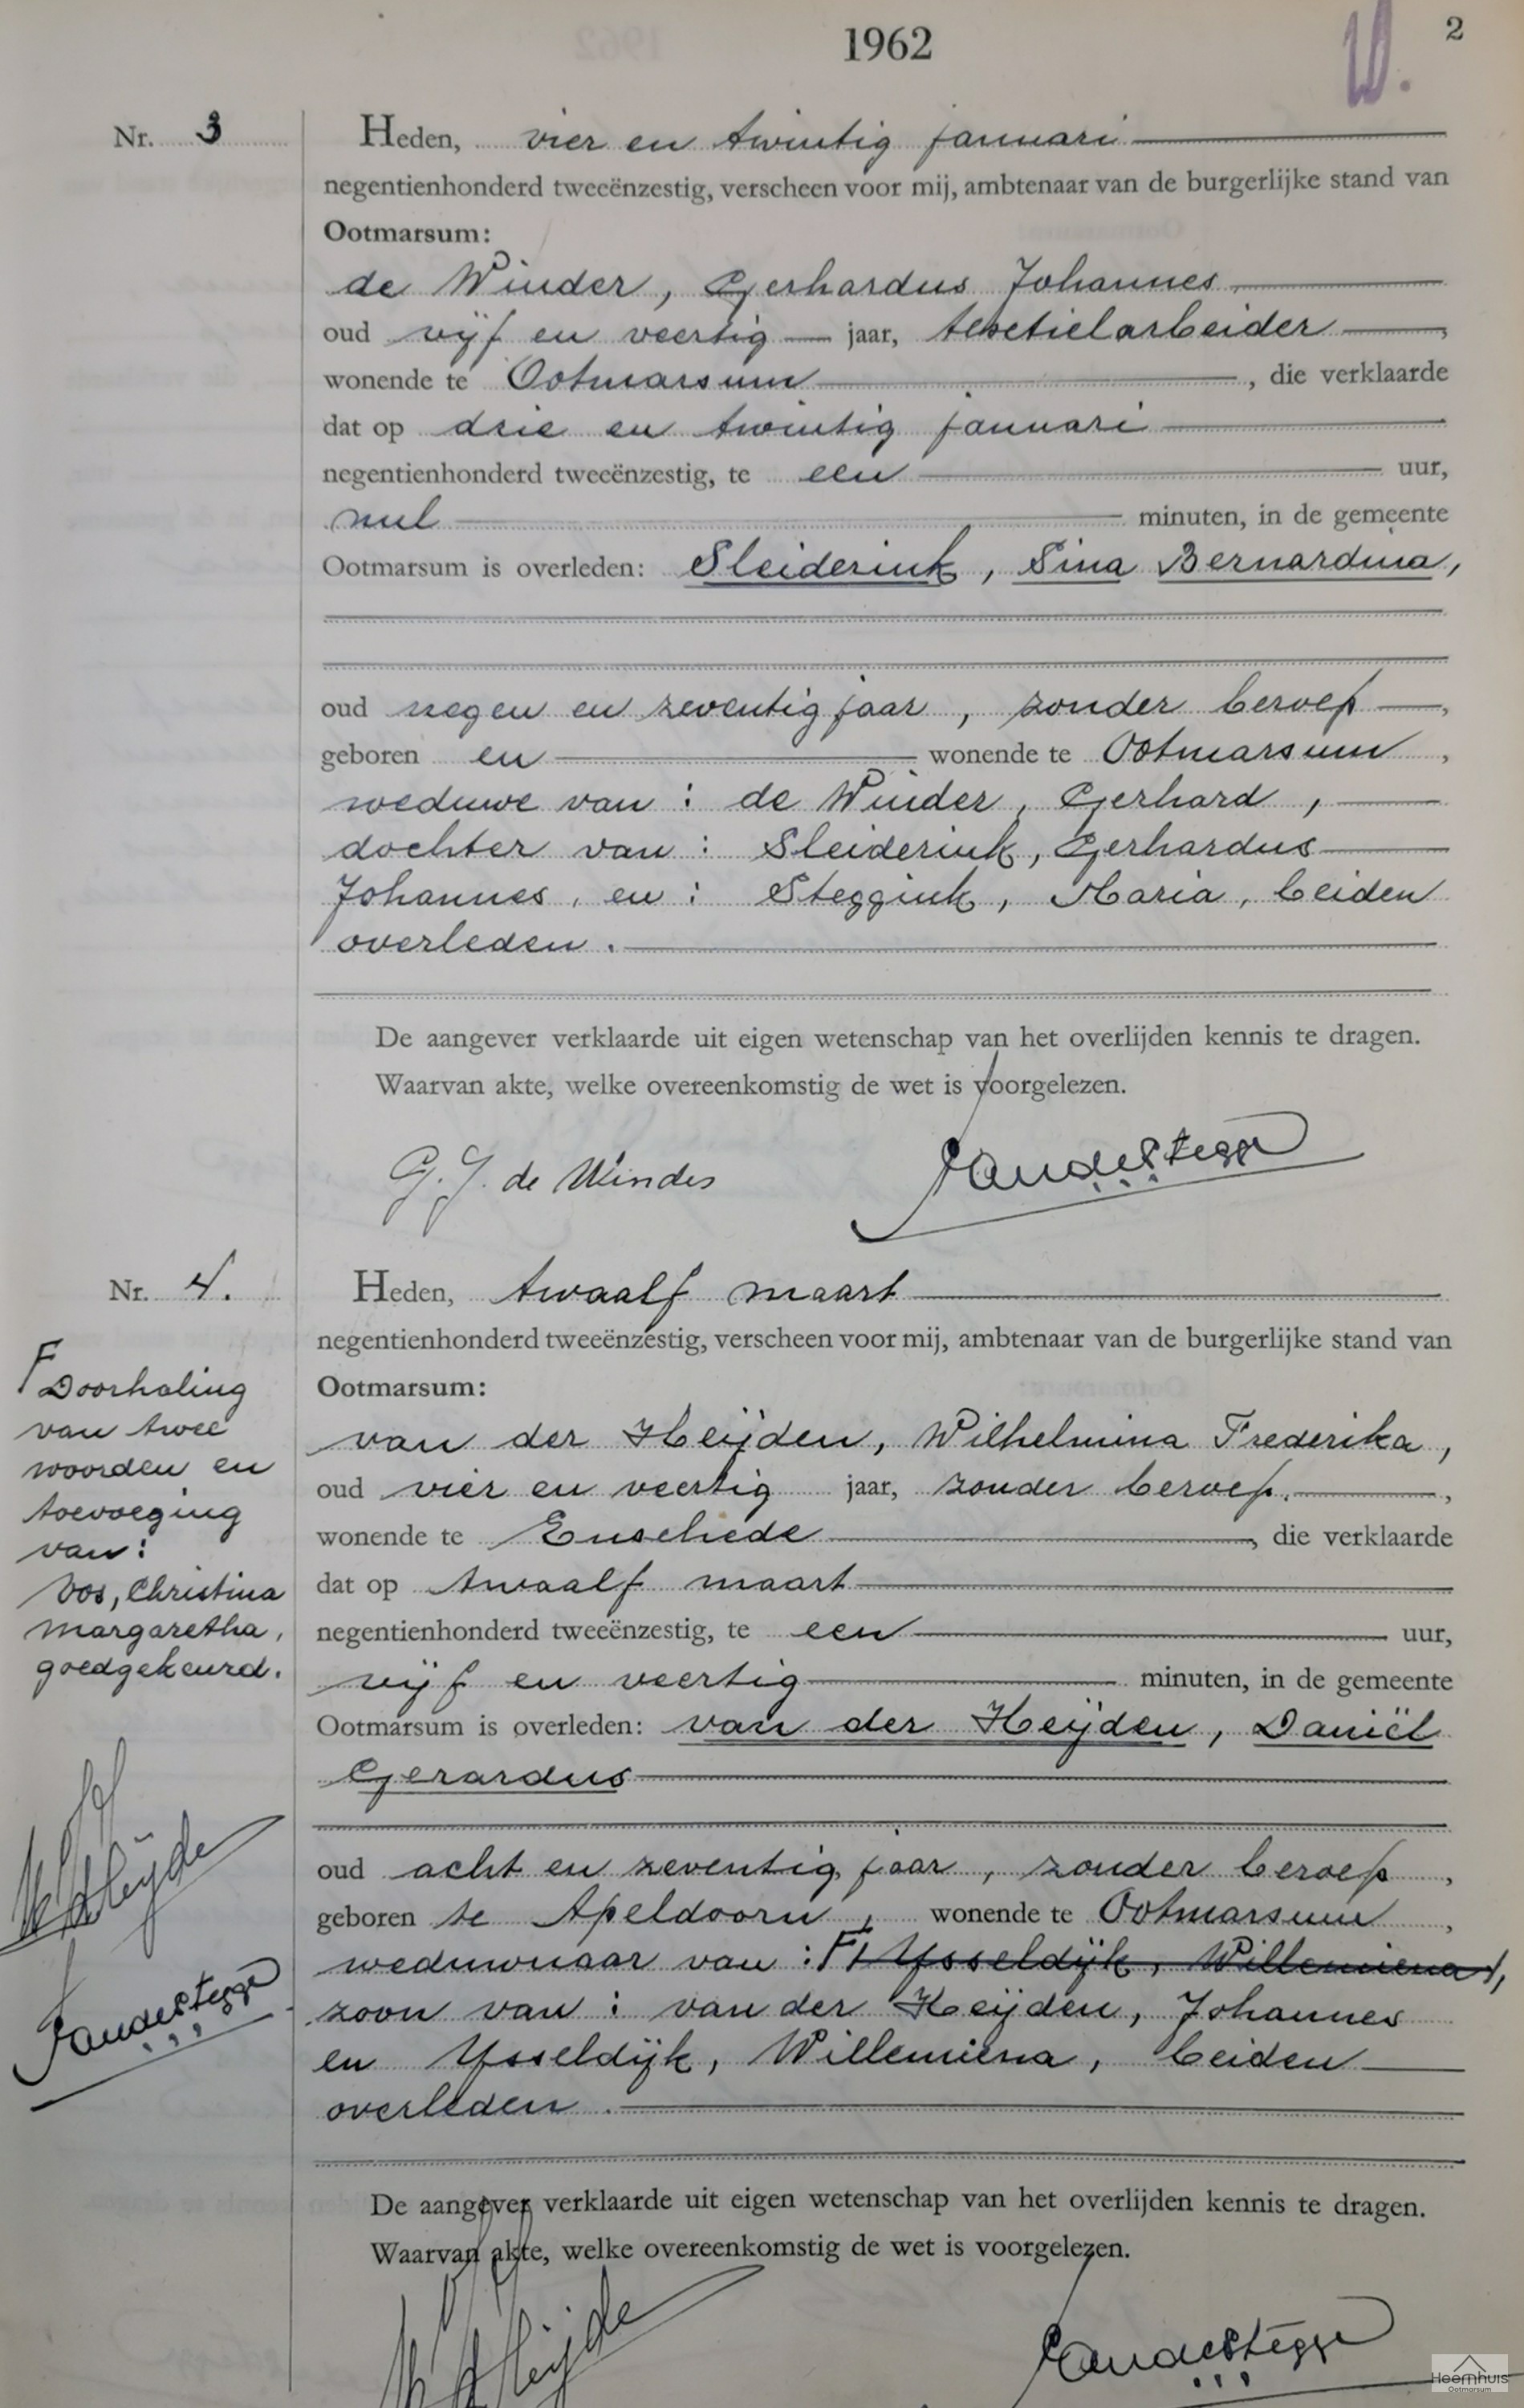 1962
2
Nr. 3
Heden, vier en twintig januari
negentienhonderd tweeënzestig, verscheen voor mij, ambtenaar van de burgerlijke stand van
Ootmarsum:
de Winder, Gerhardus Johannes
oud vijf en veertig jaar, textielarbeider,
wonende te Ootmarsum, die verklaarde
dat op drie en twintig januari
negentienhonderd tweeënzestig, te een uur,
nul minuten, in de gemeente
Ootmarsum is overleden: Sleiderink, Sina Bernardina,
oud negen en zeventig jaar, zonder beroep,
geboren en wonende te Ootmarsum,
weduwe van: de Winder, Gerhard,
dochter van: Sleiderink, Gerhardus
Johannes, en: Steggink, Maria, beiden
overleden.
De aangever verklaarde uit eigen wetenschap van het overlijden kennis te dragen.
Waarvan akte, welke overeenkomstig de wet is voorgelezen.
G. J. de Winder
Nr. 4.
Heden, twaalf maart
negentienhonderd tweeënzestig, verscheen voor mij, ambtenaar van de burgerlijke stand van
Ootmarsum:
van der Heijden, Wilhelmina Frederika,
oud vier en veertig jaar, zonder beroep.,
wonende te Enschede, die verklaarde
dat op twaalf maart
negentienhonderd tweeënzestig, te een uur,
vijf en veertig minuten, in de gemeente
Ootmarsum is overleden: van der Heijden, Daniël
Gerardus
oud acht en zeventig jaar, zonder beroep,
geboren te Apeldoorn, wonende te Ootmarsum,
weduwnaar van: F Ysseldijk, Willemiena,
zoon van: van der Heijden, Johannes
en Ysseldijk, Willemiena, beiden
overleden.
De aangever verklaarde uit eigen wetenschap van het overlijden kennis te dragen.
Waarvan akte, welke overeenkomstig de wet is voorgelezen.
F Doorhaling
van twee
woorden en
toevoeging
van:
Vos, Christina
Margaretha,
goedgekeurd.
Heemhuis
Ootmarsum